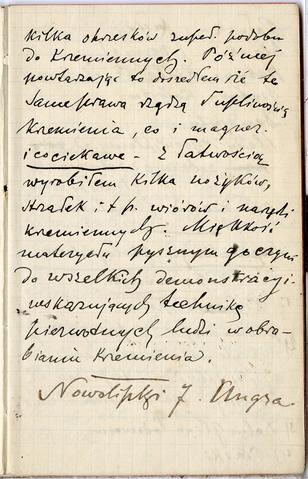 kilka okrzesków zupeł. podobn.
do Kremiennych. Później
powtarzając to doszedłem że te
same prawa rządzą łupliwością
Krzemienia, co i magnez.
i cociekawe - z łatwością
wyrobiłem kilka nożyków,
strzałek i t p. wiórów i narzędzi
kremiennych. Miękkość
materyału pysznym go czyni
do wszelkich demonstracyi
wskazujących technikę
pierwotnych ludzi w obro-
bianiu Krzemienia.
Nowolipki 7. Ungra.